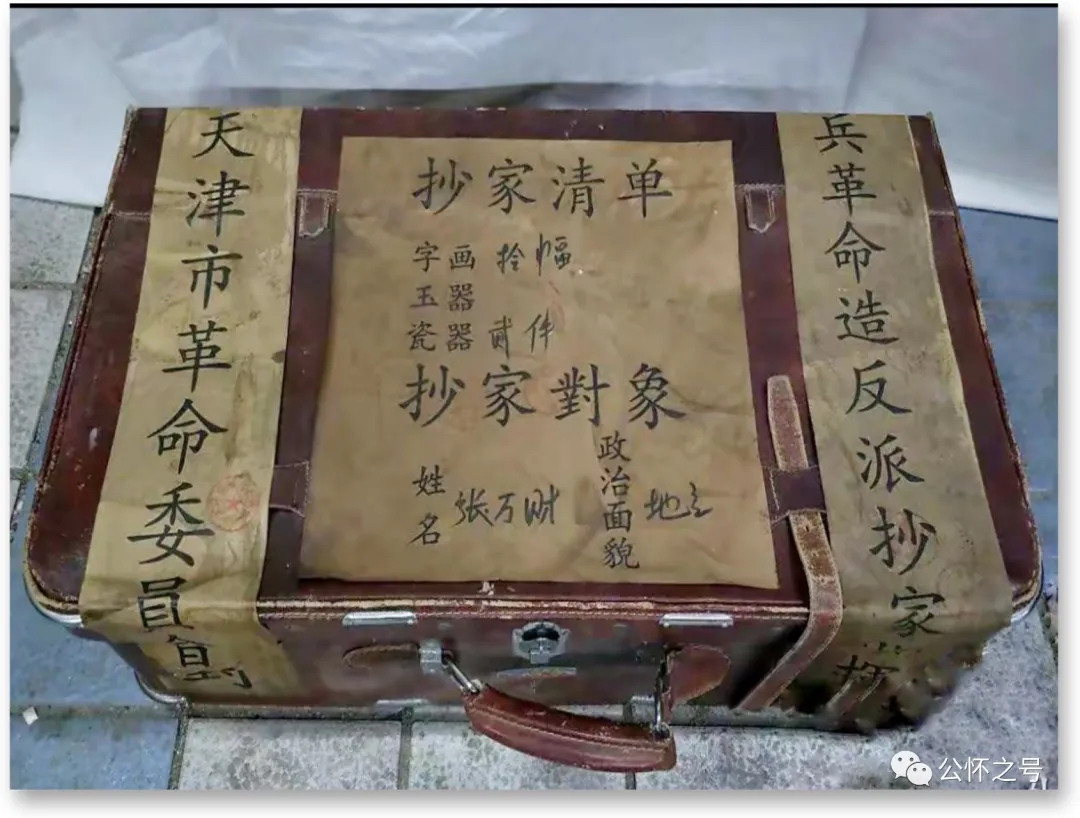 天津市革命委員
抄家清单
字画 拾幅
玉器
瓷器 貳件
抄家對象
姓名 张万财 政治面貌 地主
兵革命造反派抄家
公怀之号